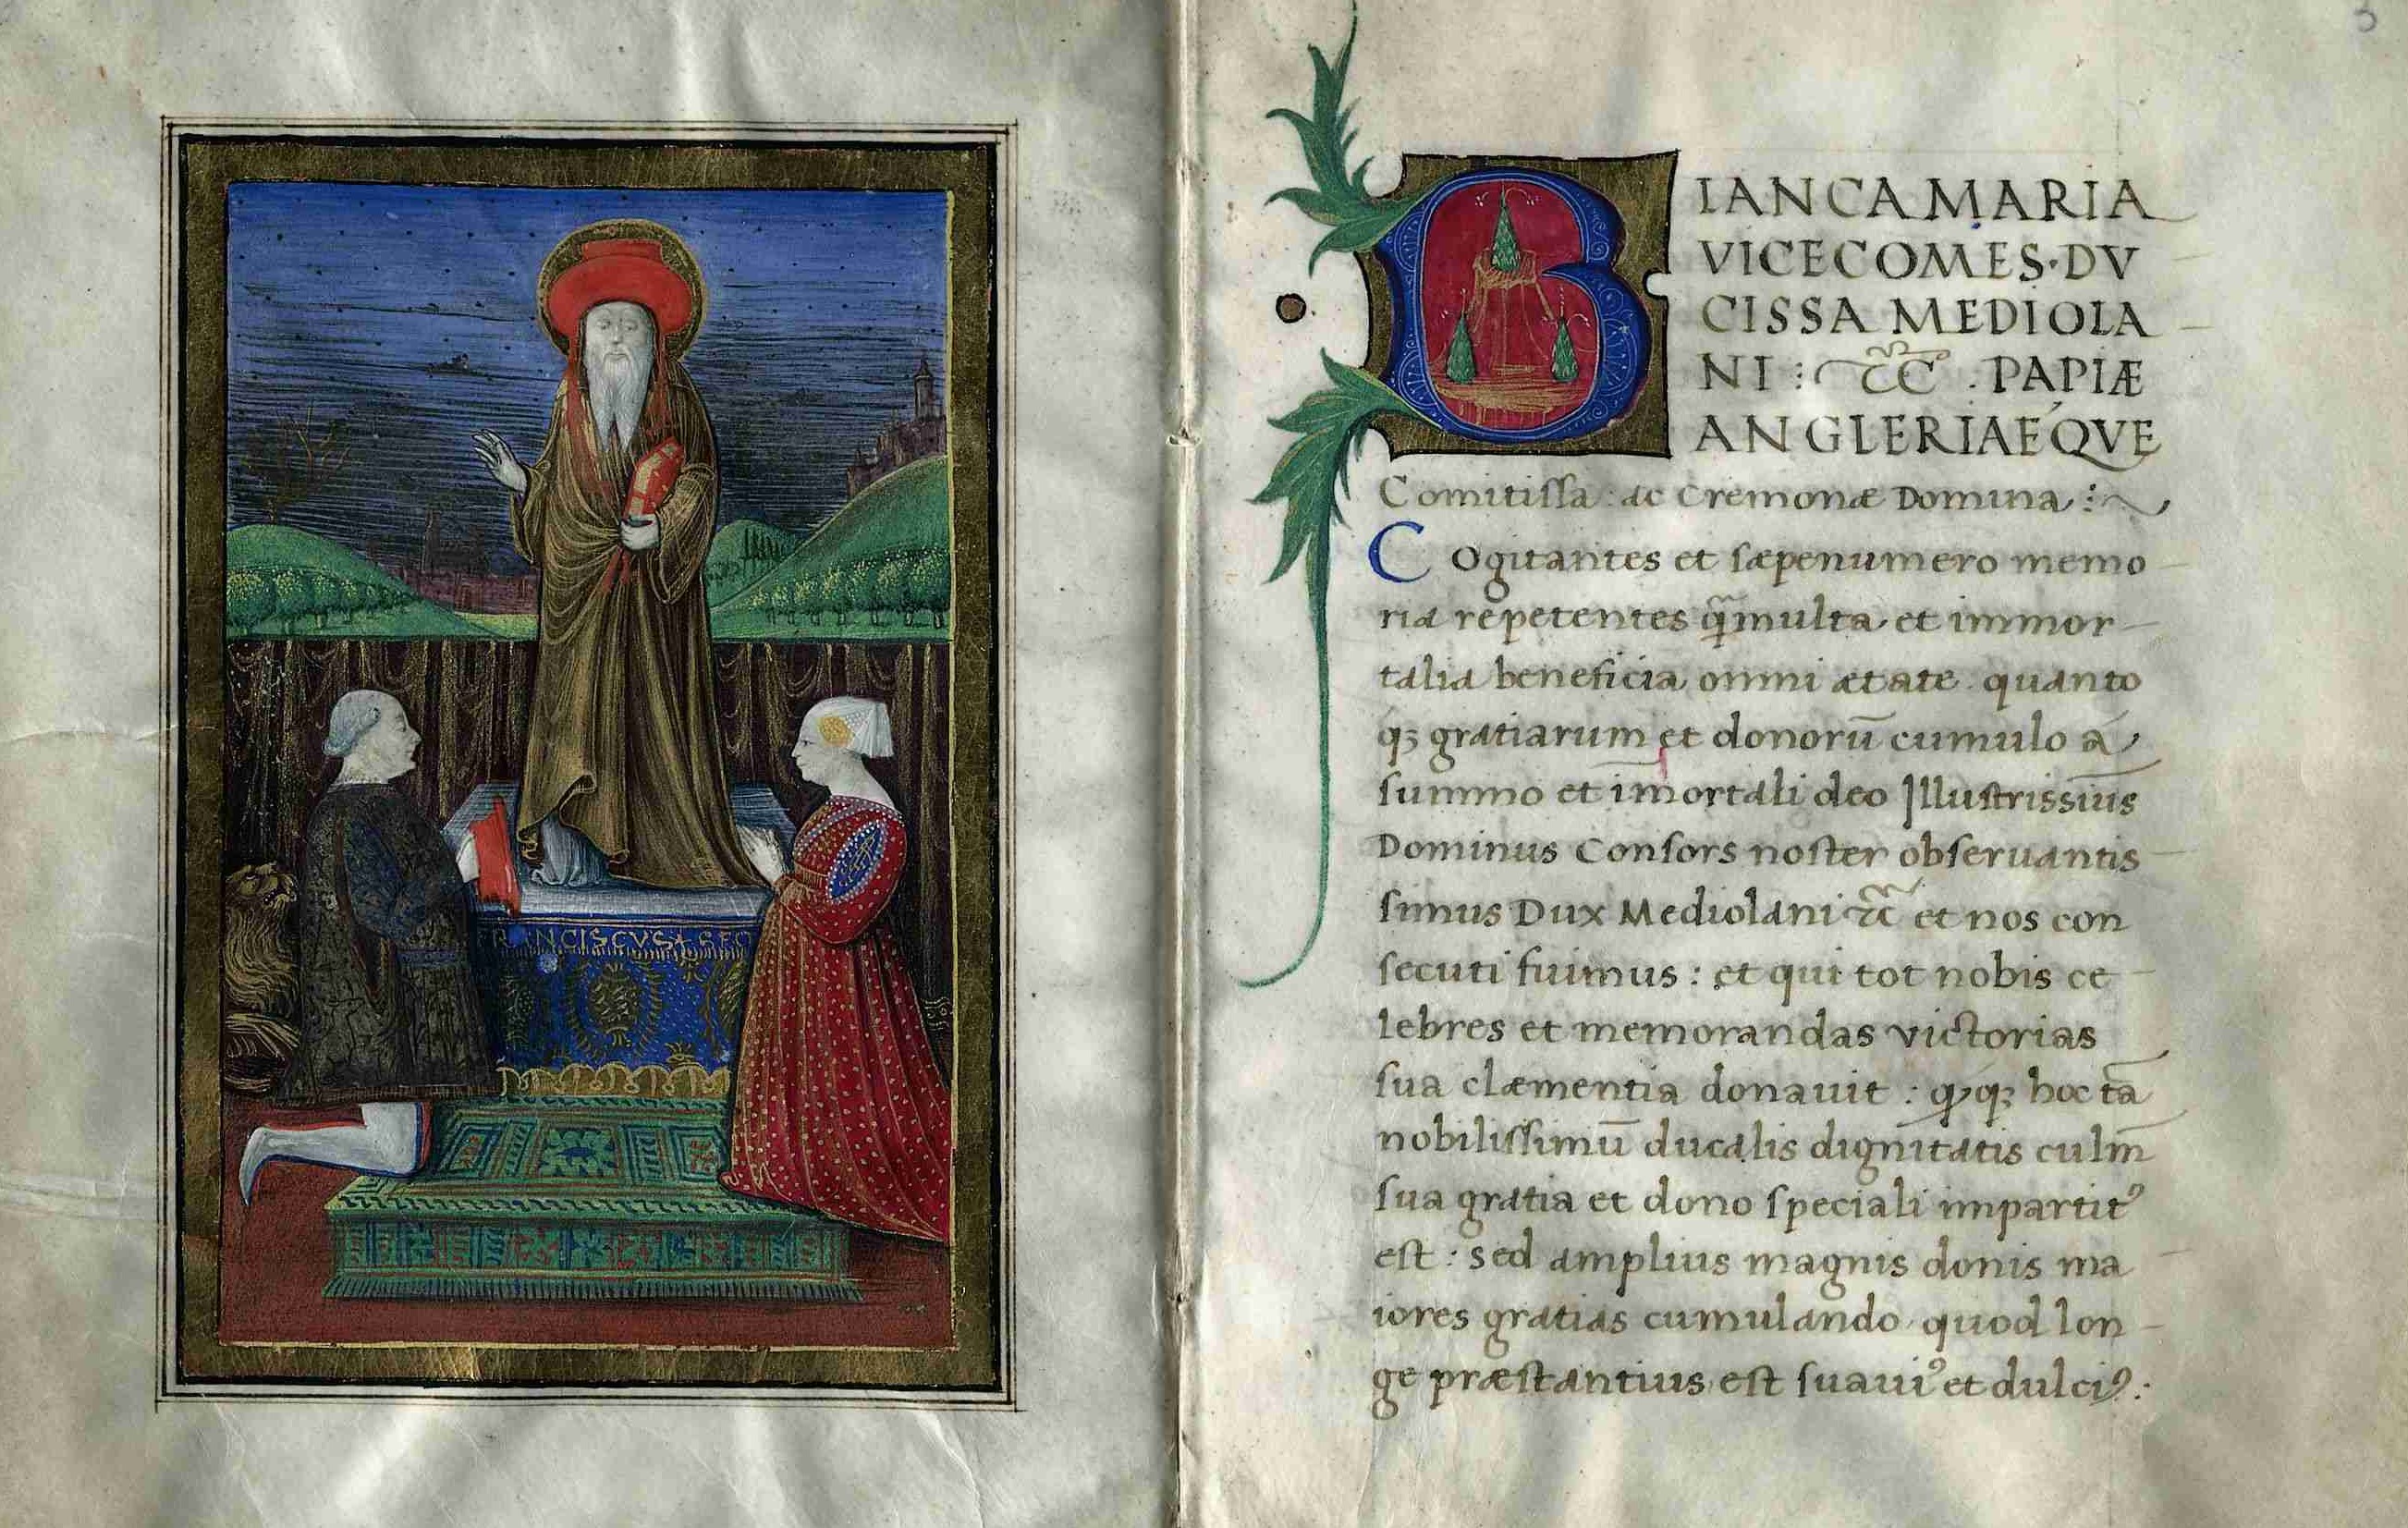 RANCISCVS SFO
3
BIANCA MARIA
VICECOMES·DV
CISSA MEDIOLA
NI : &c̃ . PAPIÆ
ANGLERIAEQVE
Comitiſſa : ac Cremonæ Domina :~
COgitantes et ſæpenumero memo
ria repetentes q̃multa et immor-
talia beneficia omni ætate quanto
qꝫ gratiarum et donorū cumulo a
ſummo et im̄ortali deo Illuſtrissim̄us
Dominus Conſors noſter obſeruantis
ſimus Dux Mediolani &c̃ et nos con
ſecuti fuimus : et qui tot nobis ce
lebres et memorandas victorias
ſua clæmentia donauit : qꝫ hoc tā
nobiliſſimū ducalis dignitatis culm̄
ſua gratia et dono ſpeciali impartitꝰ
eſt : sed amplius magnis donis ma
iores gratias cumulando quod lon
ge præſtantius eſt ſuauiꝰ et dulciꝰ: